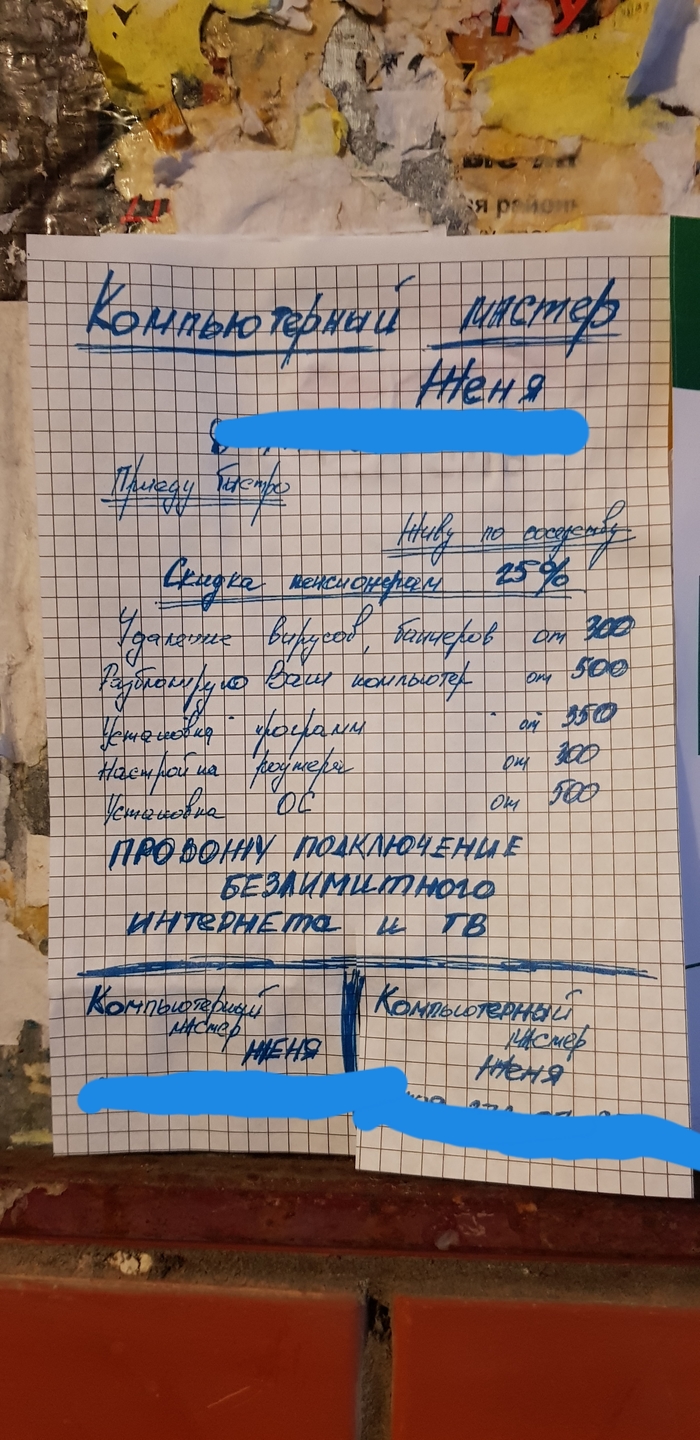 я район
Компьютерный мастер
Женя
Приеду быстро
Живу по соседству
Скидка пенсионерам 25%
Удаление вирусов, баннеров от 300
Разблокирую Ваш компьютер от 500
Установка программ от 350
Настройка роутера от 300
Установка ОС от 500
ПРОВОЖУ ПОДКЛЮЧЕНИЕ
БЕЗЛИМИТНОГО
ИНТЕРНЕТА и ТВ
Компьютерный
мастер
ЖЕНЯ
Компьютерный
мастер
Женя